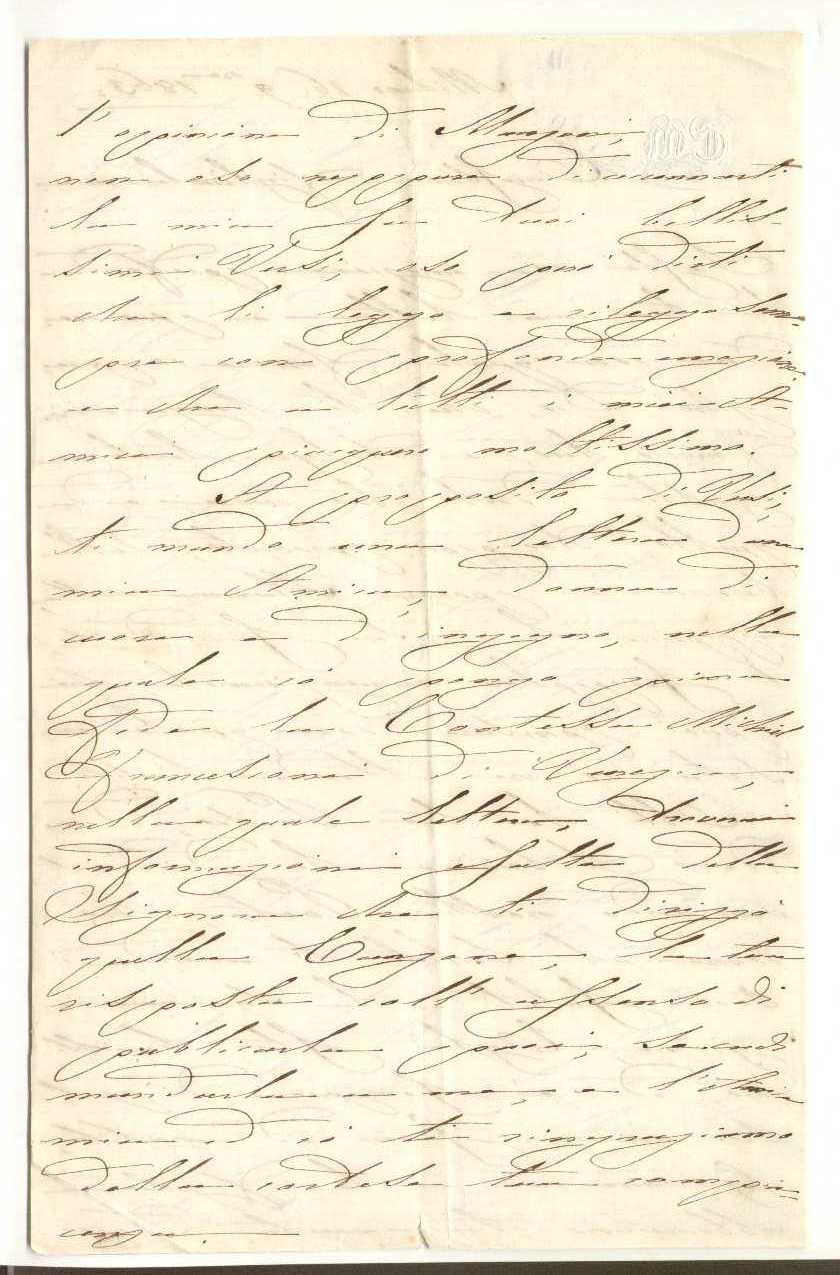 CM
l'opinione di Manzoni,
non oso neppure di accennarti
la mia su tuoi bellis-
simi Versi, oso però dirti
che li leggo e rileggo sem-
pre con profonda emozione
e che a tutti i miei A-
mici piacquero moltissimo.
A proposito di Versi,
ti mando una lettera d'una
mia Amica, donna di
cuore e d'ingegno, nella
quale io pongo piena
fede la Contessa Michiel
di Venezia,
nella quale lettera, troverai
informazioni esatte della
Signora che ti dirizzò
quella Canzone, la tua
risposta coll'assenso di
publicarla puoi, se credi
mandarla a me, e l'Amica
mia ed io ti ringraziamo
della cortese tua compia-
cenza